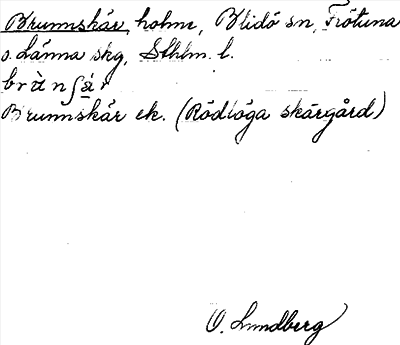 Brunnskär, holme, Blidö sn, Frötuna
o. Länna skg, Sthlm. l.
Brunnskär ek. (Rödlöga skärgård)
O. Lundberg